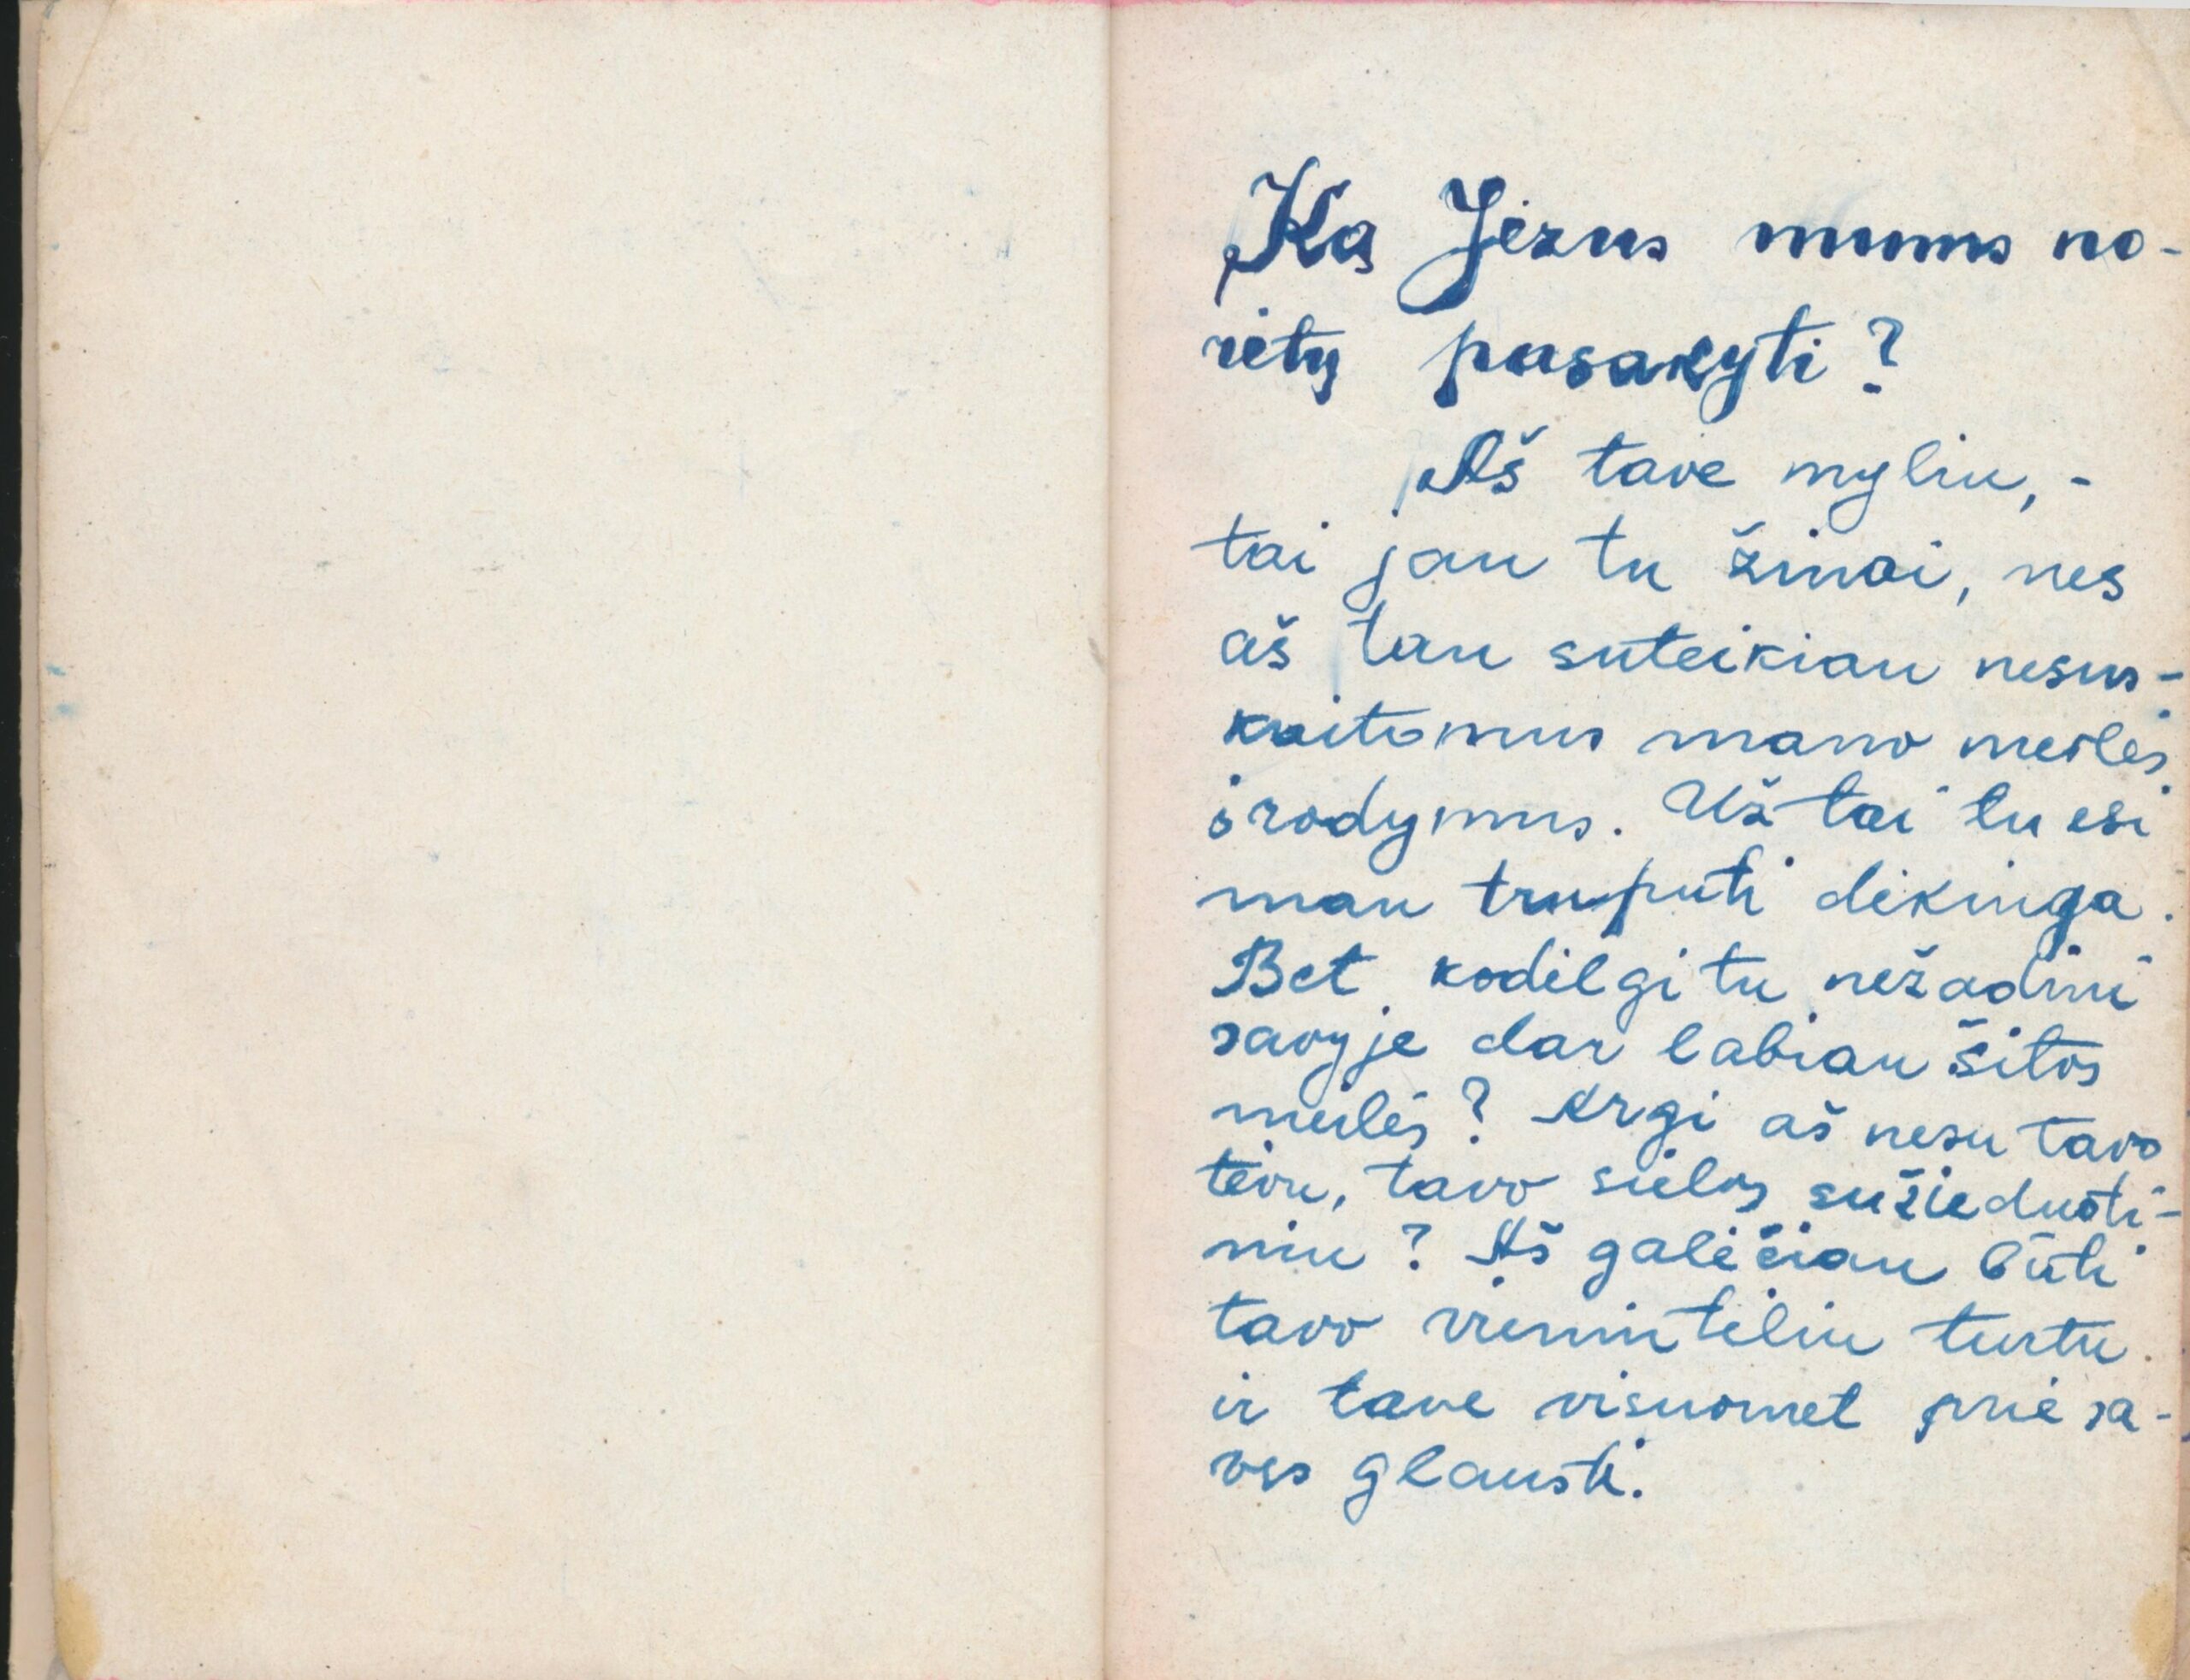 Ką Jėzus mums no-
rėtų pasakyti?
Aš tave myliu, -
tai jau tu žinai, nes
aš tau suteikiau nesus-
kaitomus mano meilės
įrodymus. Už tai tu esi
man truputį dėkinga.
Bet kodėlgi tu nežadini
savyje dar labiau šitos
meilės? Argi aš nesu tavo
tėvu, tavo sielos sužieduoti-
niu? Aš galėčiau būti
tavo vieninteliu turtu
ir tave visuomet prie sa-
vęs glausti.